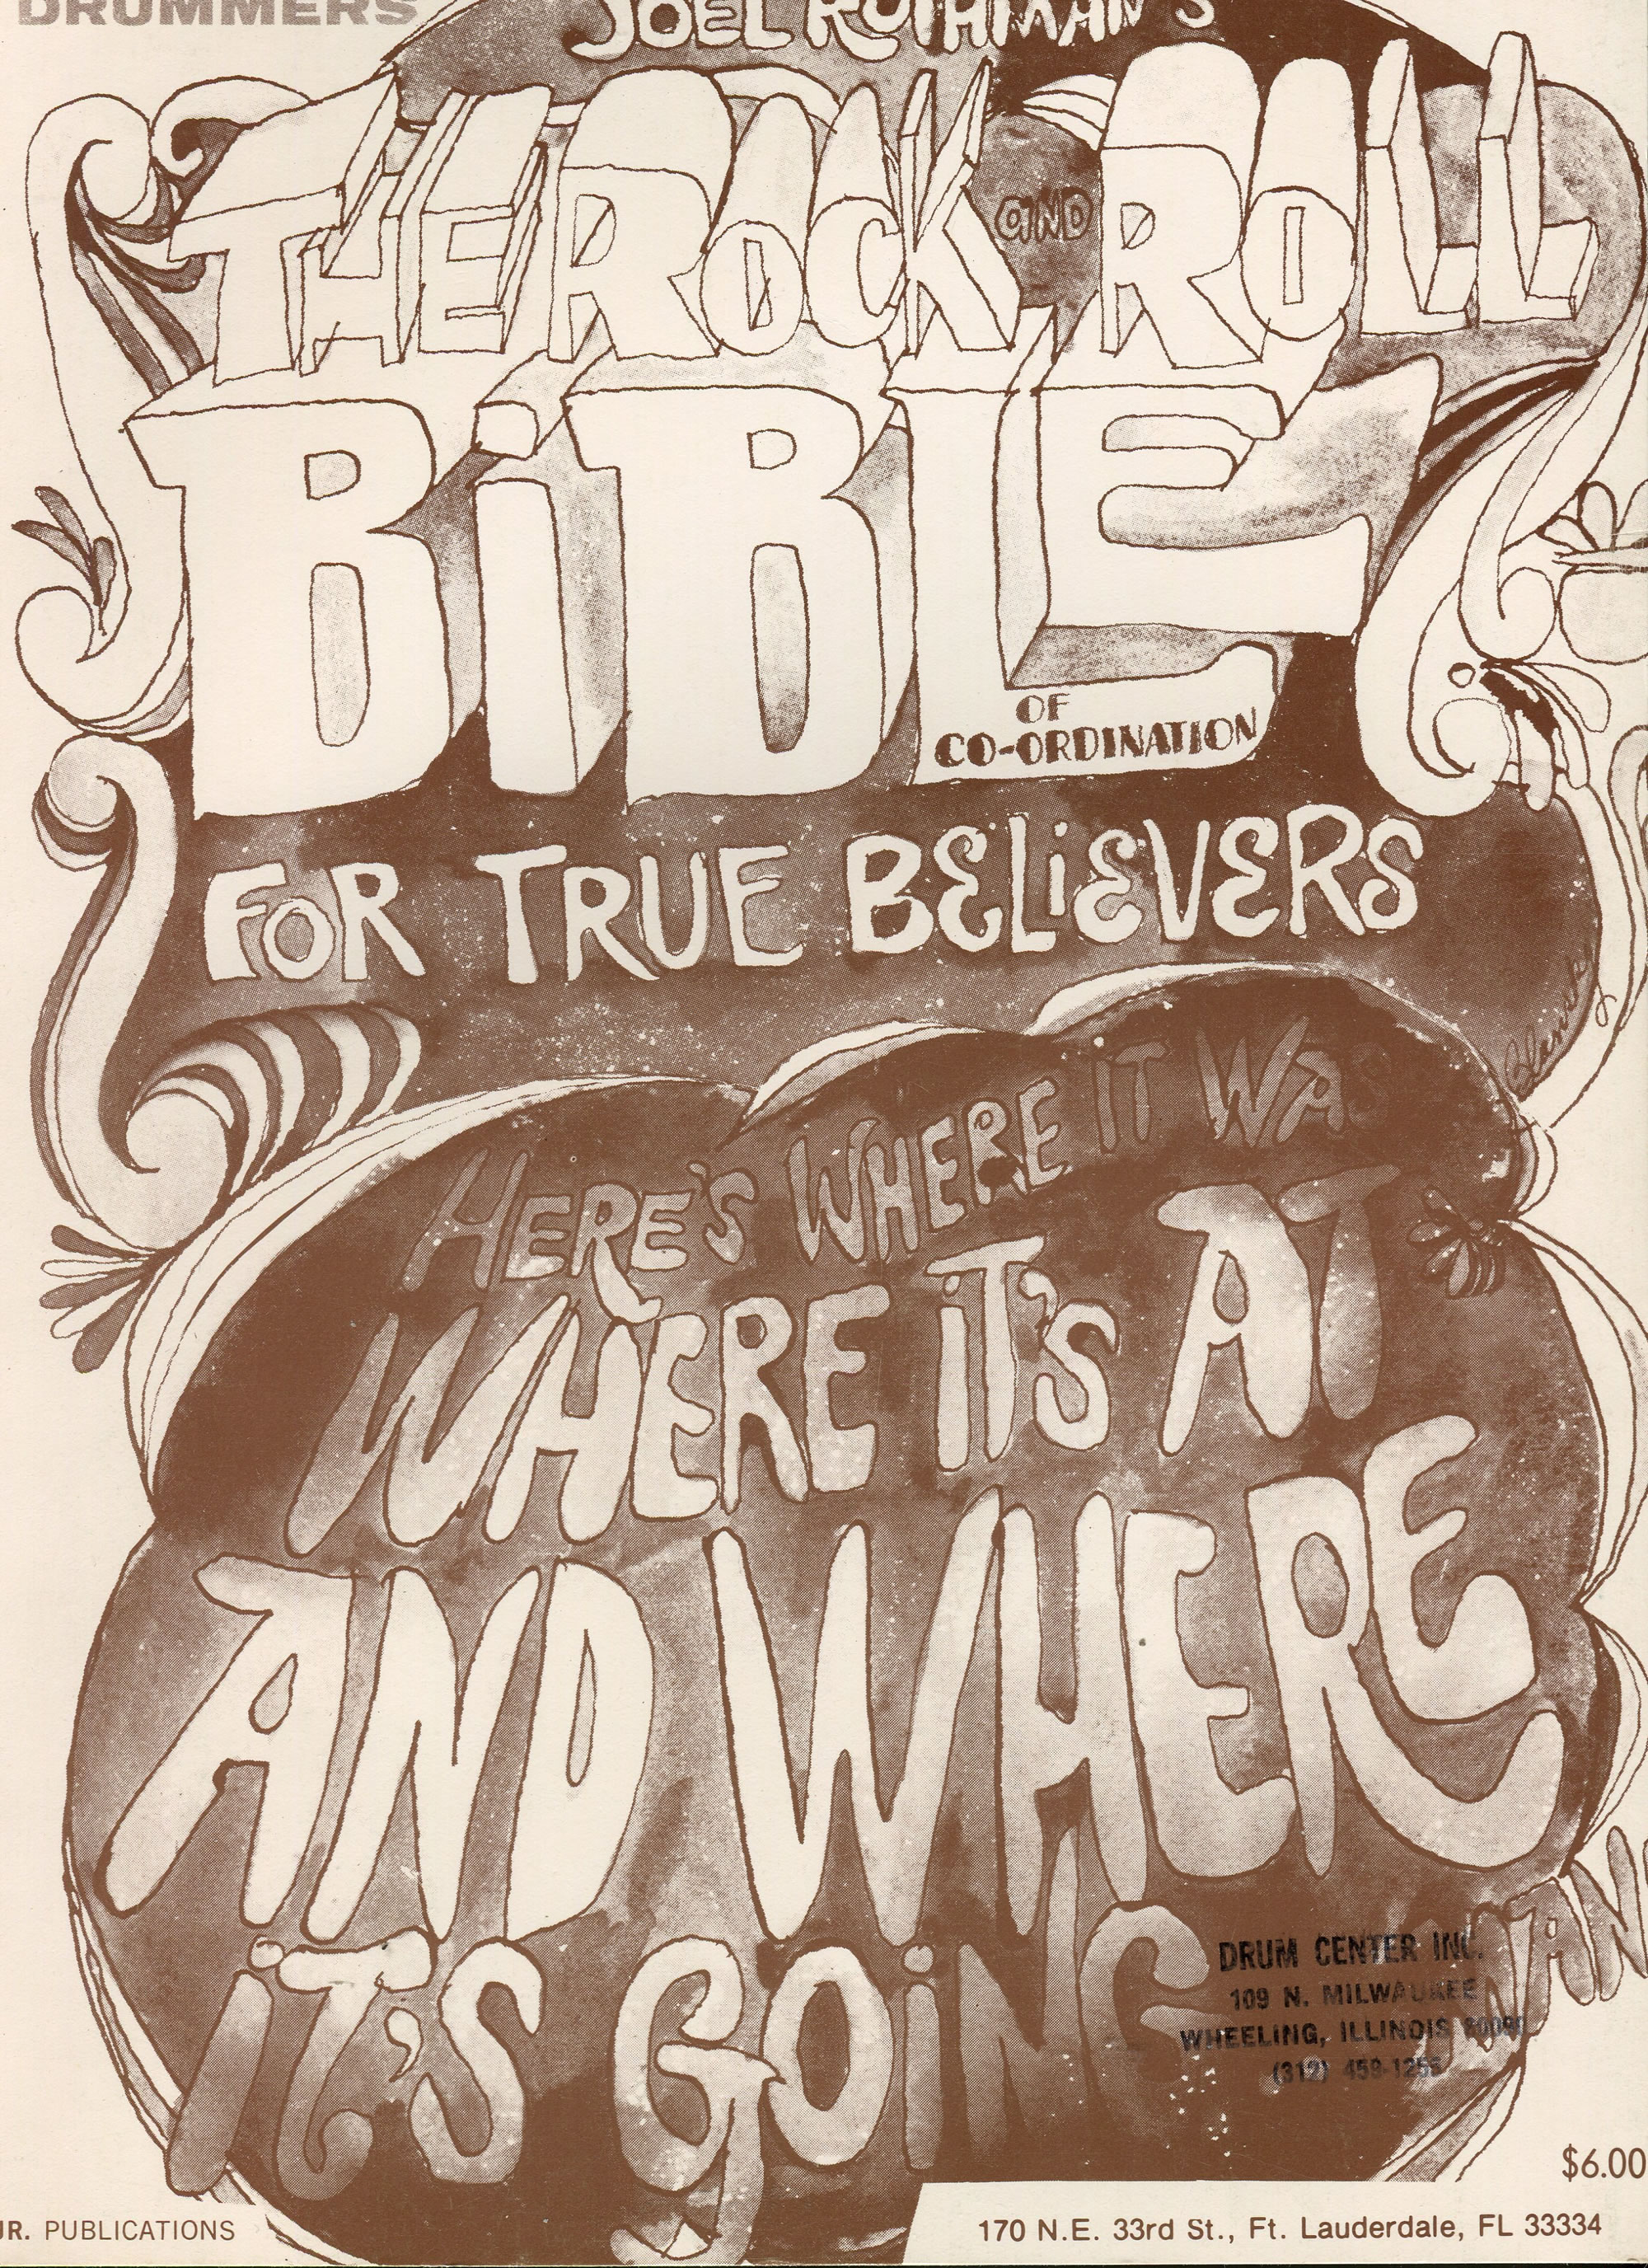 DRUMMERS
JOEL ROTHMAN'S
THE ROCK AND ROLL
BiBLE
OF
CO-ORDINATION
FOR TRUE BELiEVERS
HERE'S WHERE IT WAS
WHERE iT'S AT
AND WHERE
iT'S GOiNG
DRUM CENTER INC.
109 N. MILWAUKEE
WHEELING, ILLINOIS
(312) 459-1255
$6.00
JR. PUBLICATIONS
170 N.E. 33rd St., Ft. Lauderdale, FL 33334